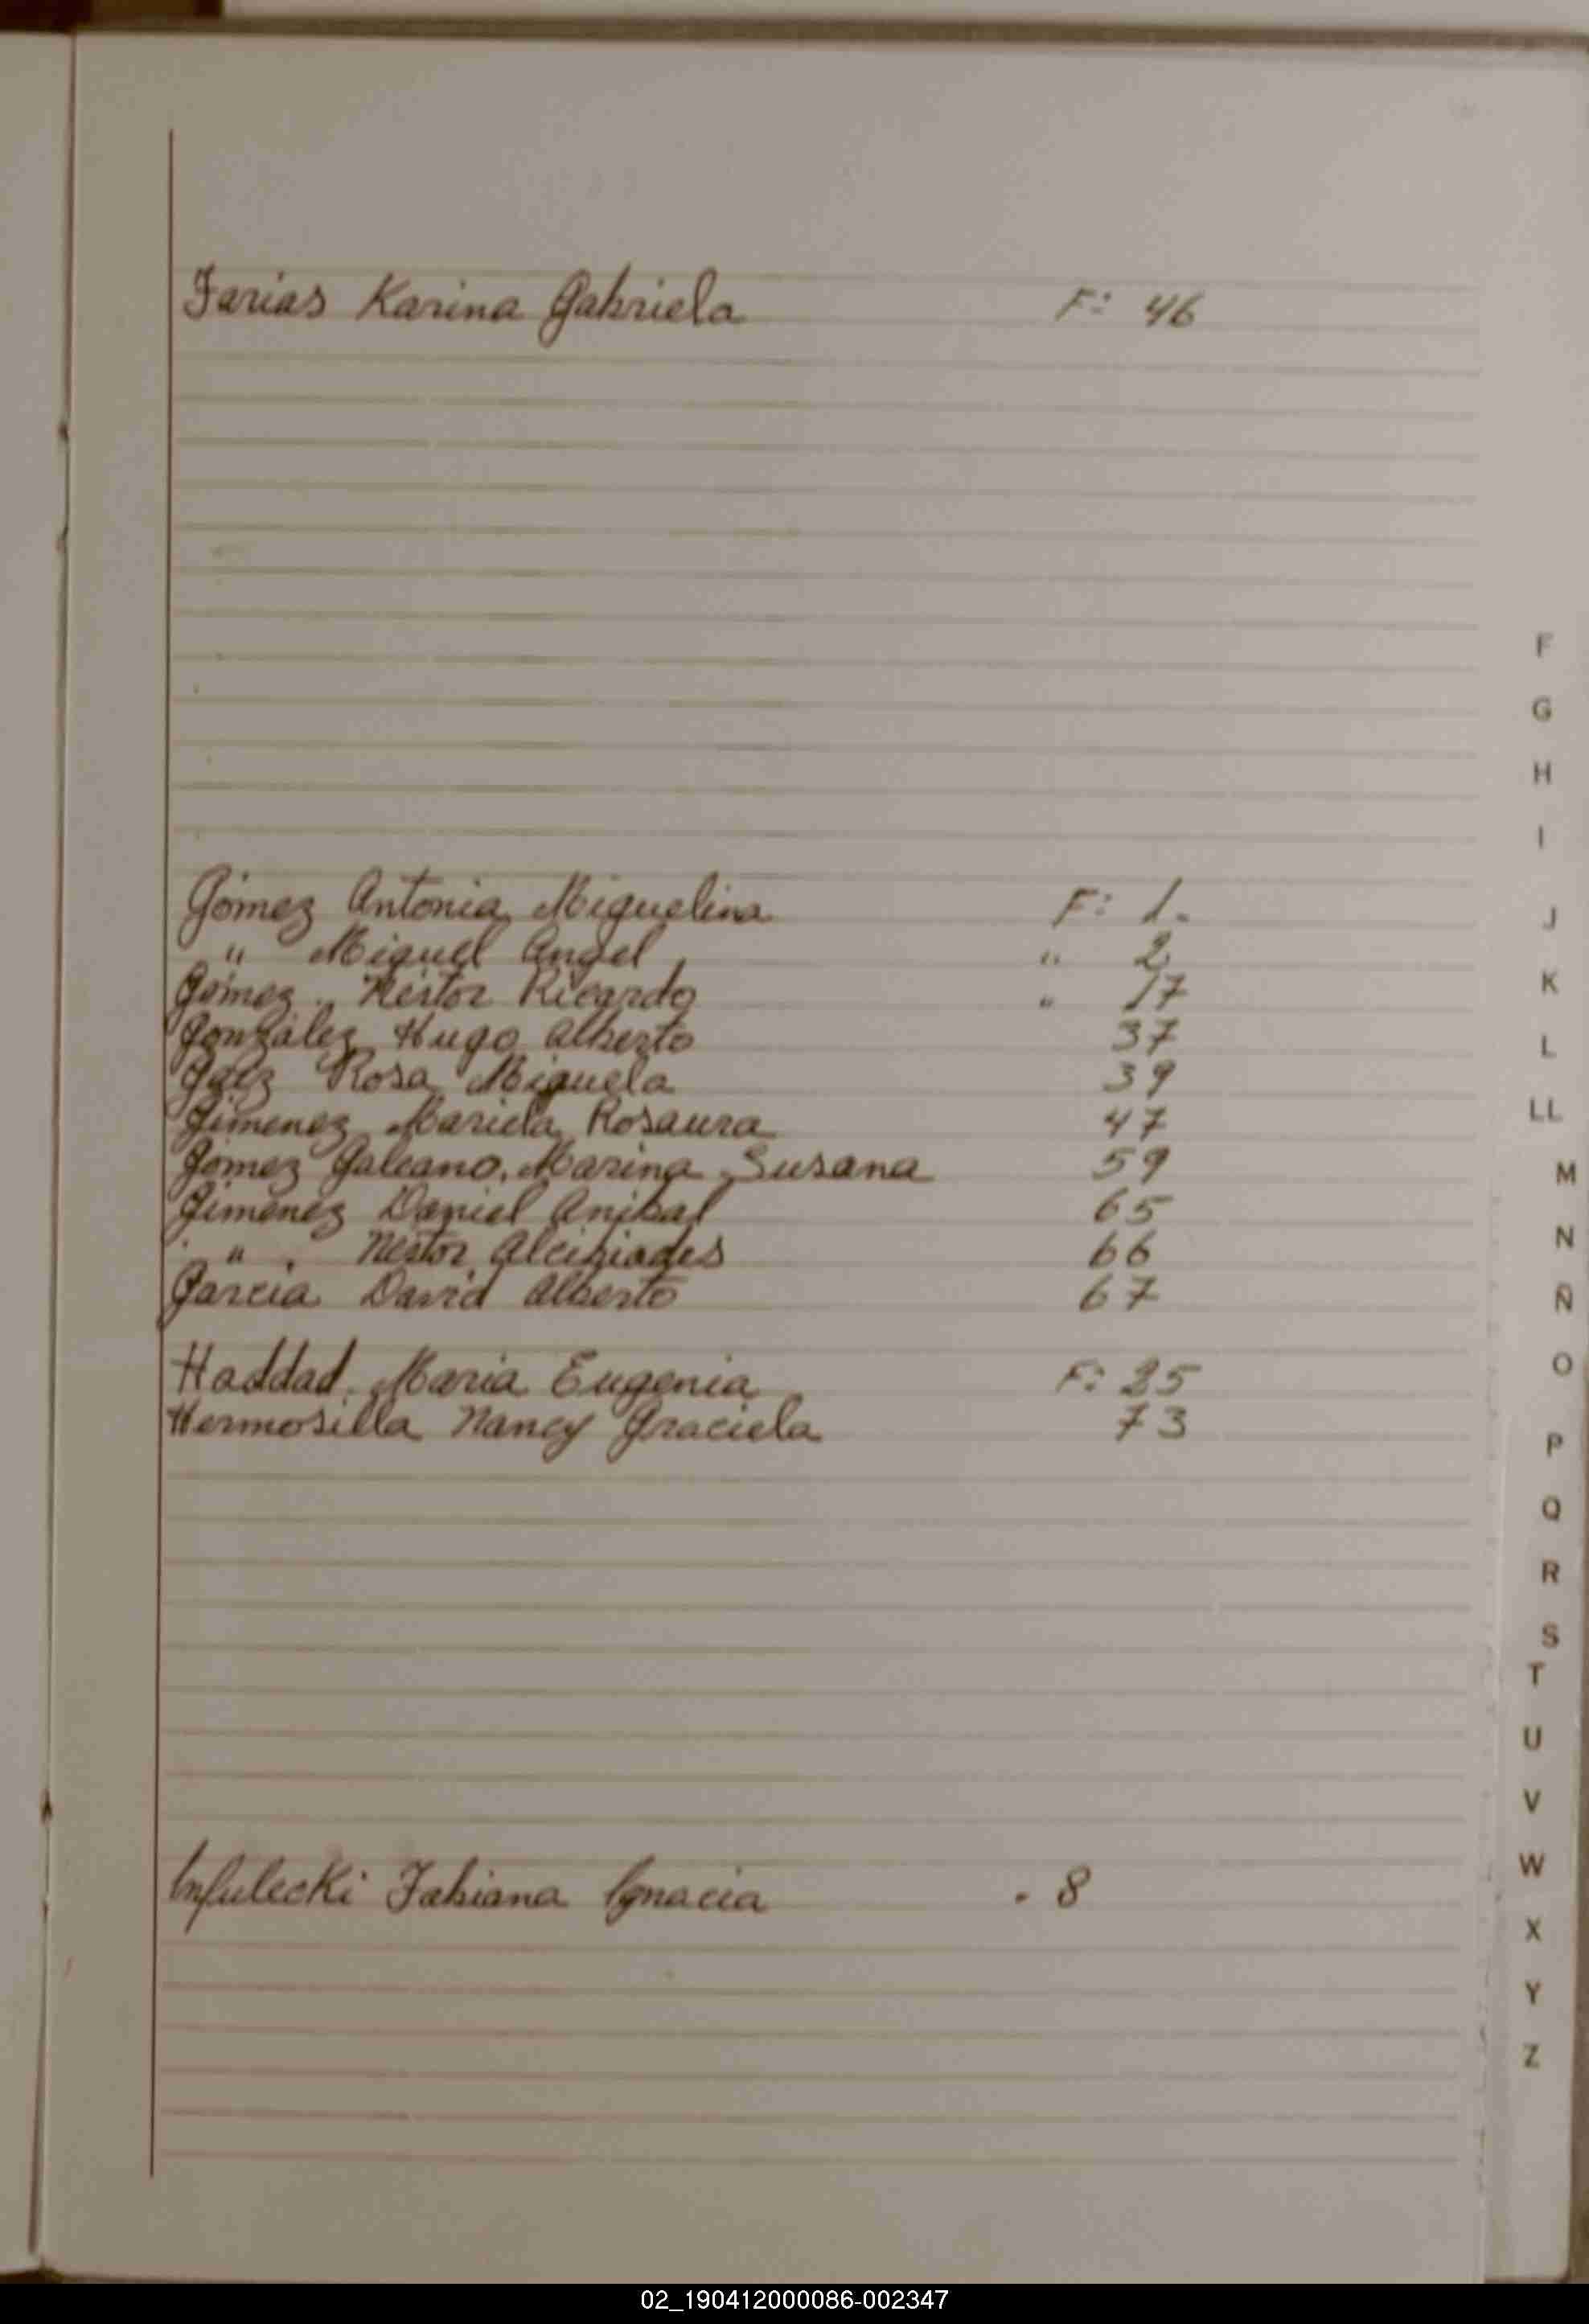 Farias Karina Gabriela F: 46
Gómez Antonia Miguelina F: 1.
" Miguel Angel " 2
Gómez Néstor Ricardo " 17
González Hugo Alberto 37
Galz Rosa Miguela 39
Gimenez Mariela Rosaura 47
Gómez Galeano, Marina Susana 59
Gimenez Daniel Anibal 65
" Néstor Alcibiades 66
Garcia David Alberto 67
Haddad Maria Eugenia F: 25
Hermosilla Nancy Graciela 73
Infulecki Fabiana Ignacia . 8
F
G
H
I
J
K
L
LL
M
N
Ñ
O
P
Q
R
S
T
U
V
W
X
Y
Z
02_190412000086-002347